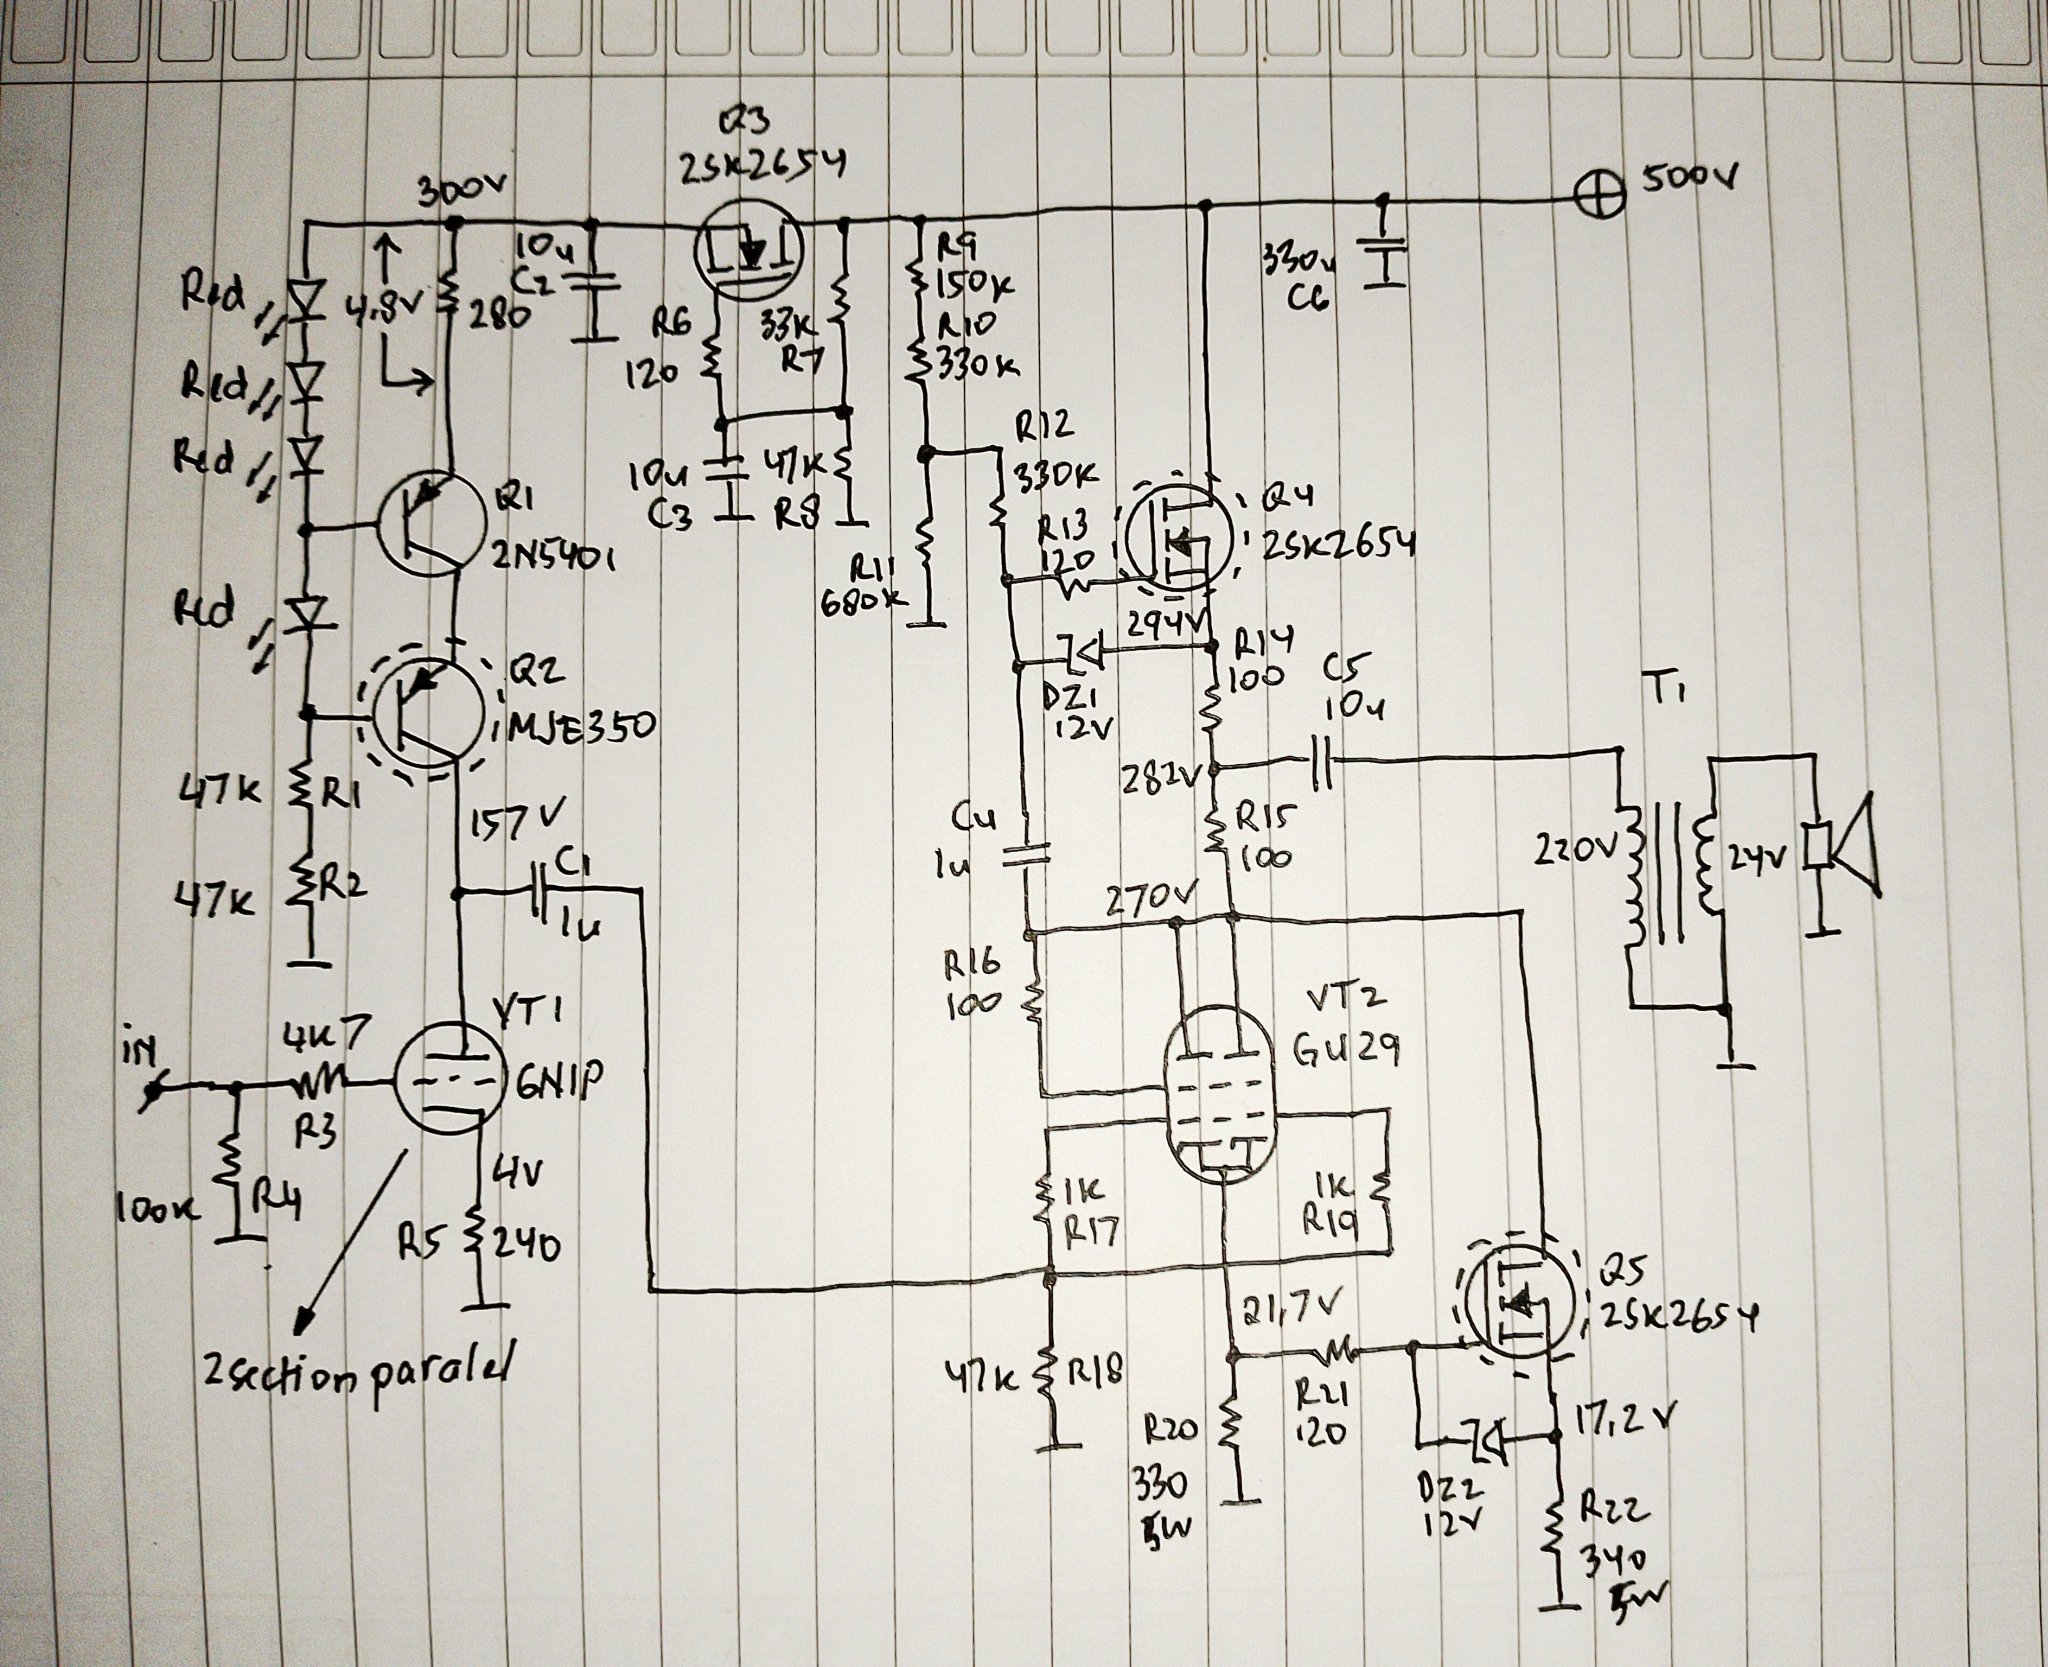 Q3
2SK2654
300V
500V
Red
4.8V
280
10u
C2
R6
120
33K
R7
R9
150K
R10
330K
330u
C6
Red
Red
Q1
2N5401
10u
C3
47K
R8
R12
330K
R13
120
Q4
2SK2654
R11
680K
294V
Red
Q2
MJE350
DZ1
12V
R14
100
C5
10u
T1
282V
47K
R1
157V
C4
1u
R15
100
220V
24V
47K
R2
C1
1u
270V
R16
100
VT2
GU29
in
4K7
R3
VT1
6N1P
100K
R4
4V
R5
240
1K
R17
1K
R19
2 section paralel
21,7V
Q5
2SK2654
47K
R18
R20
330
5W
R21
120
17,2V
DZ2
12V
R22
340
5W